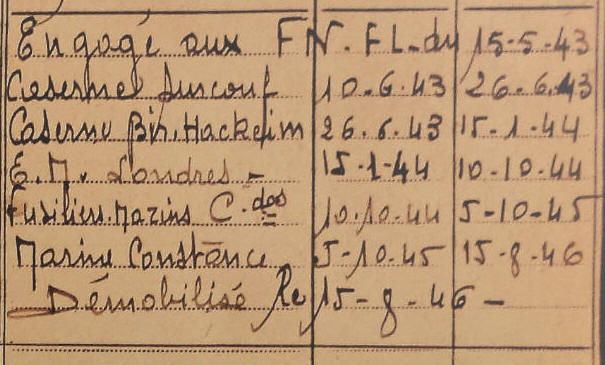 Engagé aux FN.FL. du 15-5-43
Caserne Surcouf 10-6-43 26-6-43
Caserne Bir.Hackeim 26.6.43 15-1-44
E.M. Londres - 15-1-44 10-10-44
Fusiliers.Marins C.dos 10.10.44 5-10-45
Marine Constance 5-10-45 15-8-46
Démobilisé le 15-8-46 -